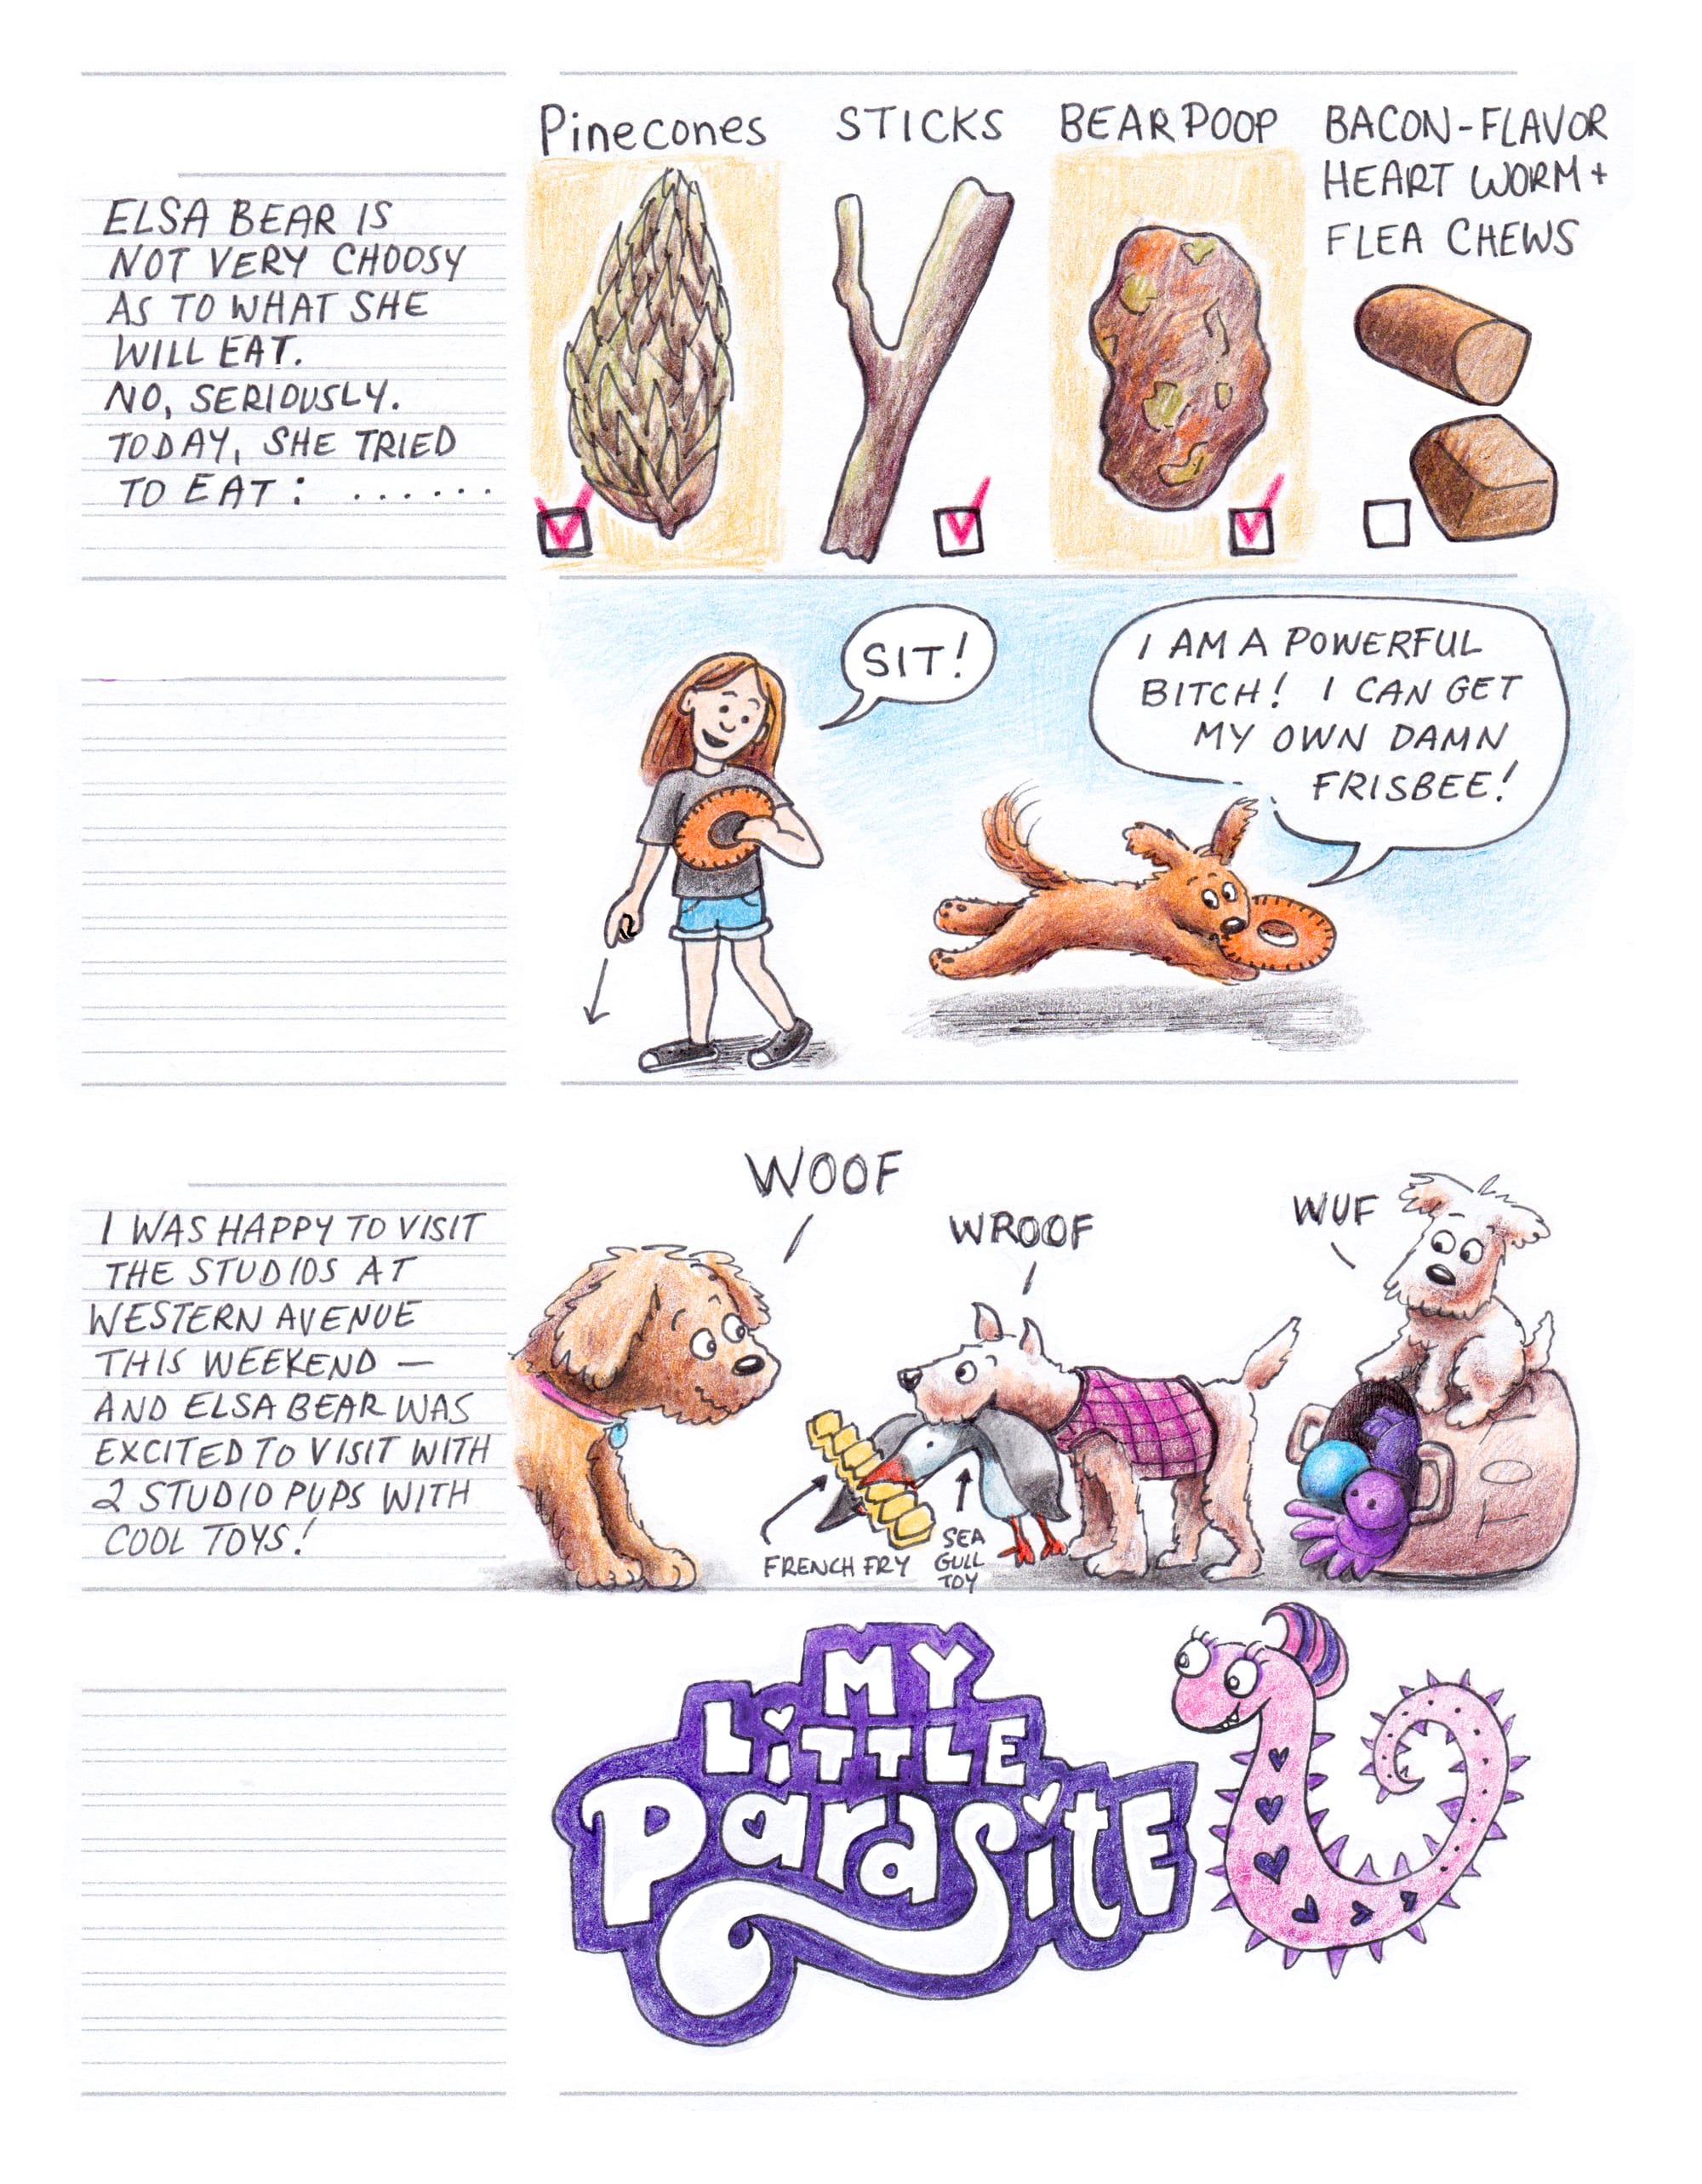 ELSA BEAR IS
NOT VERY CHOOSY
AS TO WHAT SHE
WILL EAT.
NO, SERIOUSLY.
TODAY, SHE TRIED
TO EAT: ......
Pinecones
STICKS
BEAR POOP
BACON-FLAVOR
HEART WORM +
FLEA CHEWS
SIT!
I AM A POWERFUL
BITCH! I CAN GET
MY OWN DAMN
FRISBEE!
I WAS HAPPY TO VISIT
THE STUDIOS AT
WESTERN AVENUE
THIS WEEKEND —
AND ELSA BEAR WAS
EXCITED TO VISIT WITH
2 STUDIO PUPS WITH
COOL TOYS!
WOOF
WROOF
WUF
FRENCH FRY
SEA
GULL
TOY
MY
LiTTLE
ParasitE